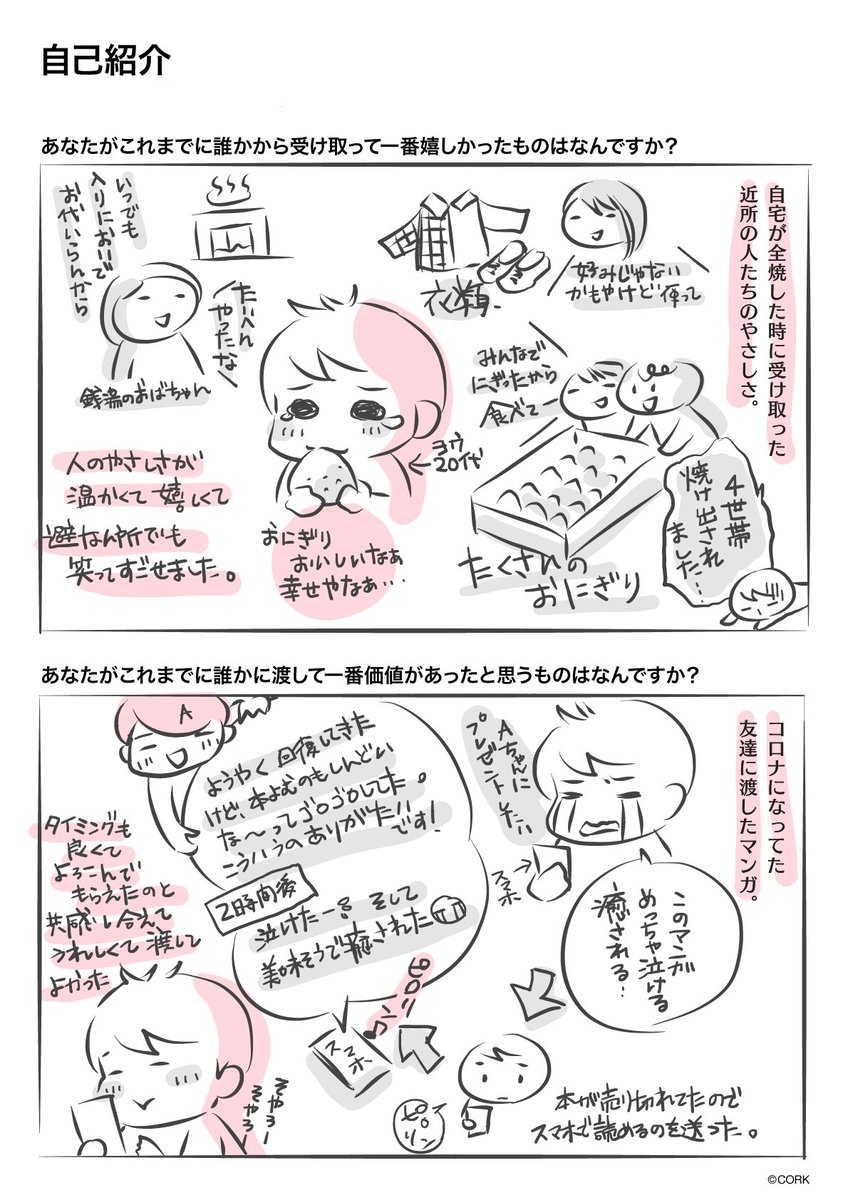 自己紹介
あなたがこれまでに誰かから受け取って一番嬉しかったものはなんですか？
自宅が全焼した時に受け取った
近所の人たちのやさしさ。
好みじゃない
かもやけど使って
衣類
みんなで
にぎったから
食べてー
たくさんの
おにぎり
4世帯
焼け出され
ました…
いつでも
入りにおいで
お代いらんから
たいへん
やったな
銭湯のおばちゃん
ヨウ
20代
おにぎり
おいしいなぁ
幸せやなぁ…
人のやさしさが
温かくて嬉しくて
避なん所でも
笑ってすごせました。
あなたがこれまでに誰かに渡して一番価値があったと思うものはなんですか？
コロナになってた
友達に渡したマンガ。
Aちゃんに
プレゼントしたい
スマホ
このマンガ
めっちゃ泣ける
癒される…
本が売り切れてたので
スマホで読めるのを送った。
ピロリン
ピロリンッ
スマホ
A
ようやく回復してきた
けど、本よむのもしんどい
な〜ってゴロゴロしてた。
こういうのありがた!!
です!
2時間後
泣けたー!そして
美味そうで癒された
タイミングも
良くて
よろこんで
もらえたのと
共感し合えて
うれしくて渡して
よかった
そやろー
そやろー
©CORK